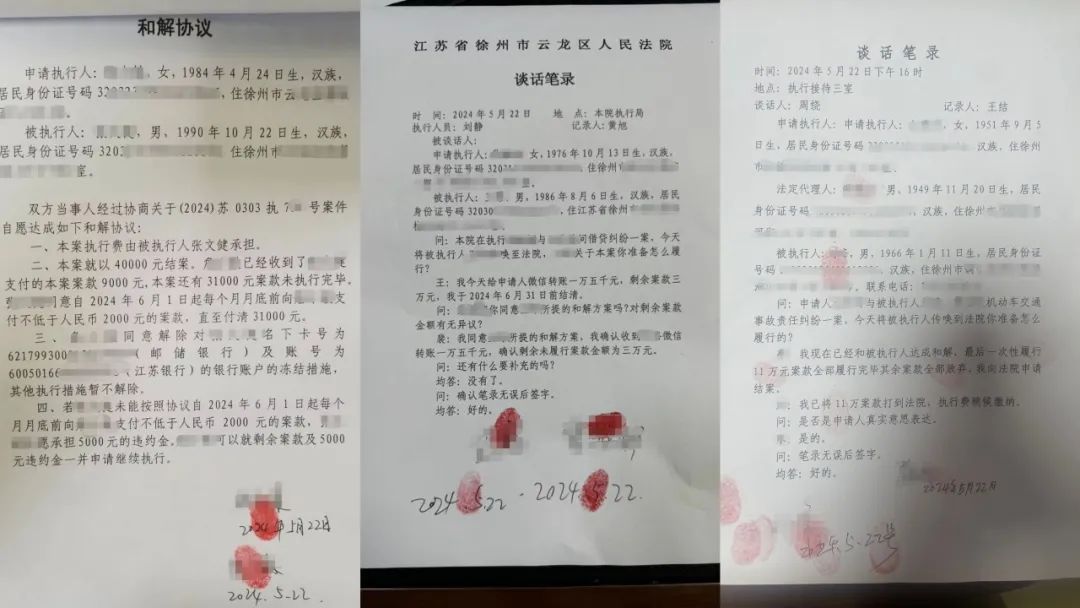 和解协议
申请执行人：女，1984年4月24日生，汉族，
居民身份证号码320323，住徐州市云
被执行人：男，1990年10月22日生，汉族，
居民身份证号码3203，住徐州市
室。
双方当事人经过协商关于(2024)苏0303执7号案件
自愿达成如下和解协议：
一、本案执行费由被执行人张文健承担。
二、本案就以40000元结案。已经收到了
支付的本案案款9000元，本案还有31000元案款未执行完毕。
同意自2024年6月1日起每个月月底前向支
付不低于人民币2000元的案款，直至付清31000元。
三、同意解除对名下卡号为
6217993００（邮储银行）及账号为
60050166（江苏银行）的银行账户的冻结措施，
其他执行措施暂不解除。
四、若未能按照协议自2024年6月1日起每个
月月底前向支付不低于人民币2000元的案款，
愿承担5000元的违约金。可以就剩余案款及5000
元违约金一并申请继续执行。
2024年5月22日
2024.5.22.
江苏省徐州市云龙区人民法院
谈话笔录
时 间：2024年5月22日 地 点：本院执行局
执行人员：刘静 记录人：黄旭
被谈话人：
申请执行人：女，1976年10月13日生，汉族，
居民身份证号码32031，住徐州
被执行人：男，1986年8月6日生，汉族，居民
身份证号码32030，住江苏省徐州
问：本院在执行与间借贷纠纷一案，今天
将被执行人唤至法院，关于本案你准备怎么履
行？
王：我今天给申请人微信转账一万五千元，剩余案款三
万元，我于2024年6月31日前结清。
问：你同意所提的和解方案吗？对剩余案款
金额有无异议？
裴：我同意所提的和解方案，我确认收到微信
转账一万五千元，确认剩余未履行案款金额为三万元。
问：还有什么要补充的吗？
均答：没有了。
问：确认笔录无误后签字。
均答：好的。
2024.5.22 2024.5.22.
谈话笔录
时间：2024年5月22日下午16时
地点：执行接待三室
谈话人：周绕 记录人：王结
申请执行人：申请执行人：女，1951年9月5
日生，居民身份证号码，汉族，住徐州
市
法定代理人：男，1949年11月20生，居民
身份证号码，汉族，住徐州
被执行人：男，1966年1月11日生，居民身份证
号码，汉族，住徐州市
联系电话：
问：申请人与被执行人机动车交通
事故责任纠纷一案，今天将被执行人传唤到法院你准备怎么
履行的？
我现在已经和被执行人达成和解，最后一次性履行
11万元案款全部履行完毕其余案款全部放弃。我向法院申请
结案。
：我已将11万案款打到法院，执行费稍候缴纳。
问：是否是申请人真实意思表达。
：是的。
问：笔录无误后签字。
均答：好的。
2024年5月22日
2024.5.22号